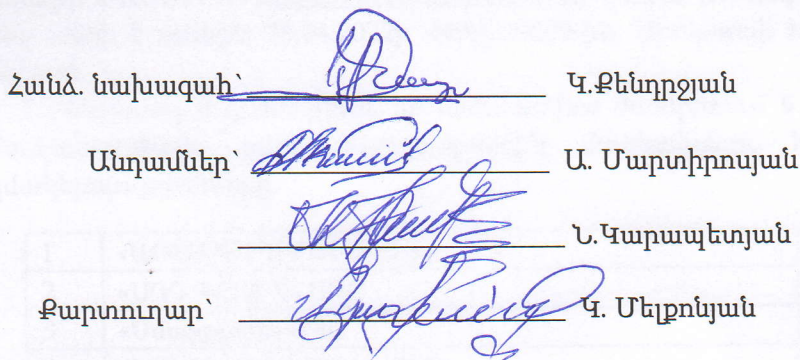 Հանձ. նախագահ՝ Կ.Քենդրջյան
Անդամներ՝ Ա. Մարտիրոսյան
Ն.Կարապետյան
Քարտուղար՝ Կ. Մելքոնյան